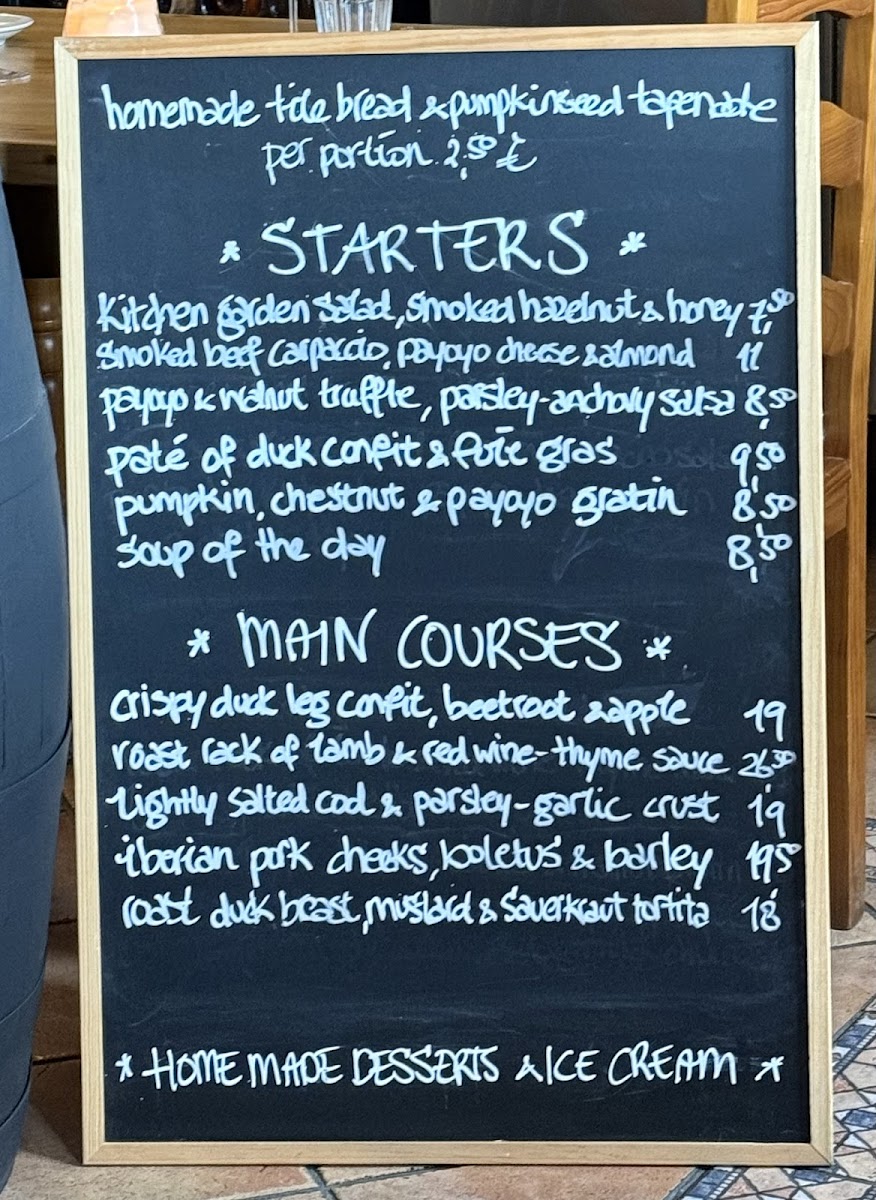 homemade tide bread & pumpkinseed tapenade
per portion 2,50 €
* STARTERS *
Kitchen garden salad, smoked hazelnut & honey 7,50
smoked beef carpaccio, payoyo cheese & almond 11
payoyo & walnut truffle, parsley-anchovy salsa 8,50
paté of duck confit & foie gras 9,50
pumpkin, chestnut & payoyo gratin 8,50
soup of the day 8,50
* MAIN COURSES *
crispy duck leg confit, beetroot & apple 19
roast rack of lamb & red wine-thyme sauce 26,50
lightly salted cod & parsley-garlic crust 19
iberian pork cheeks, boletus & barley 19,5
roast duck breast, mustard & sauerkraut tortita 18
* HOMEMADE DESSERTS & ICE CREAM *